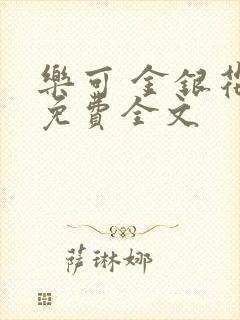 樂可 金銀花
免費全文
萨琳娜